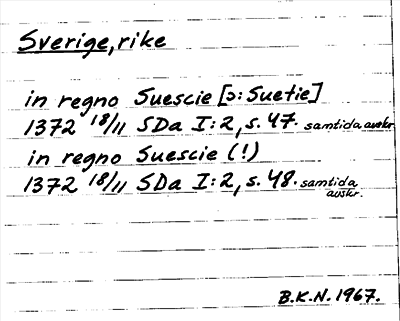 Sverige, rike
in regno Suescie [ɔ: Suetie]
1372 18/11 SDa I:2, s. 47. samtida avskr.
in regno Suescie (!)
1372 18/11 SDa I:2, s. 48. samtida
avskr.
B.K.N. 1967.